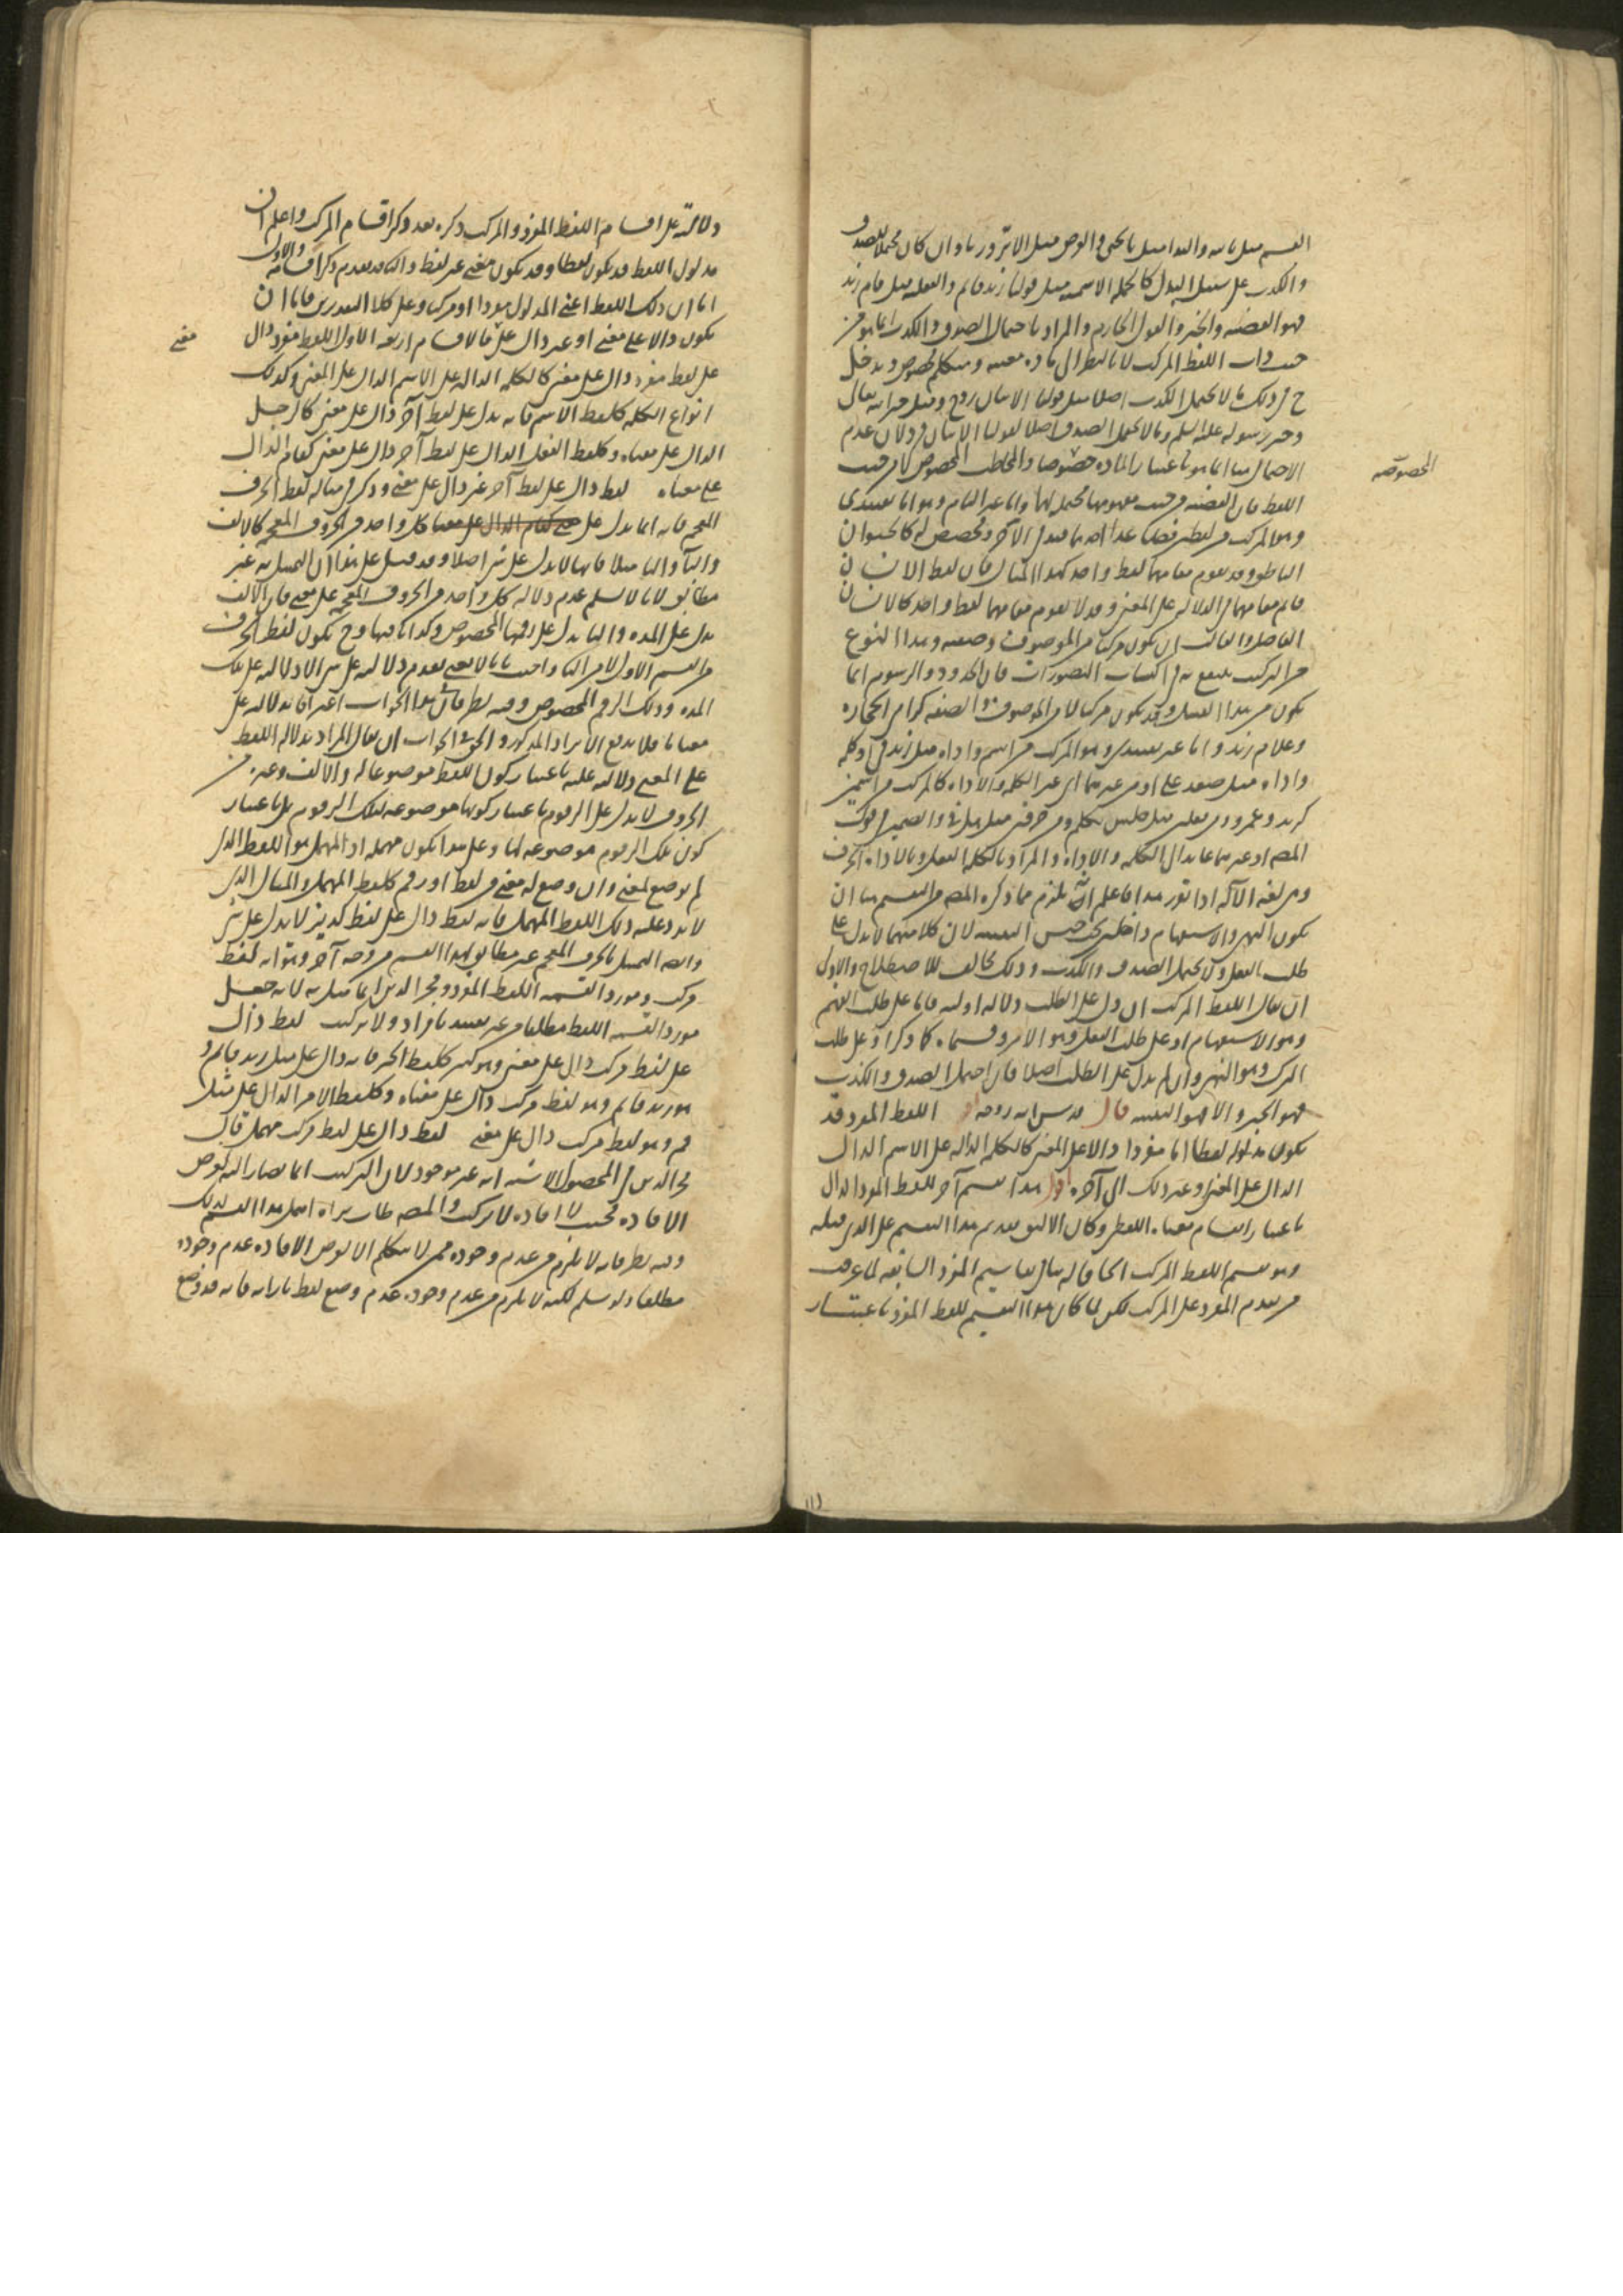 القسم مثل بالله والندا مثل يا يحيى والعرض مثل الا تنزل وزرنا وان كان محتملا للصدق
والكذب على سبيل البدل كالجملة الاسمية مثل قولنا زيد قائم والفعلية مثل قام زيد
فهو القضية والخبر والقول الجازم والمراد باحتمال الصدق والكذب انما هو من
حيث ذات اللفظ المركب لا بالنظر الى مادة معينة ومتكلم مخصوص ويدخل
ح في ذلك ما لا يحتمل الكذب اصلا مثل قولنا الانسان وخبر الله تعالى
وخبر رسوله عليه السلم وما لا يحتمل الصدق اصلا كقولنا الانسان لان عدم
الاحتمال هنا انما هو باعتبار المادة خصوصا والمخاطب المخصوص لا من حيث
المخصوصة
اللفظ فان القضية من حيث مفهومها محتملة لهما واما غير التام وهو اما تقييدى
وهو المركب من لفظين فصاعدا احدهما قيد في الآخر ومخصص له كالحيوان
الناطق وقد يقوم مقامهما لفظ واحد كهذا المثال فان لفظ الانسان
قائم مقامهما في الدلالة على المعنى وقد لا يقوم مقامهما لفظ واحد كالانسان
الفاضل والغالب ان يكون مركبا من الموصوف وصفته وهذا النوع
من التركيب ينتفع به في اكتساب التصورات فان الحدود والرسوم انما
يكون من هذا القبيل وقد يكون مركبا لا من الموصوف والصفة كرام الحجارة
وغلام زيد واما غير تقييدى وهو المركب من اسم واداة مثل زيد في او كلمة
واداة مثل صعد على او من غيرهما اى غير الكلمة والاداة كالمركب من اسمين
كزيد وعمرو ومن فعلين مثل جلس تكلم ومن حرفين مثل هل في والضمير في قول
المصـ او غيرهما عائد الى الكلمة والاداة والمراد بالكلمة الفعل وبالاداة الحرف
وهى لغة الآلة اذا تقرر هذا فاعلم انه يلزم مما ذكره المصـ من التقسيم هنا ان
يكون النهى والاستفهام داخلين تحت جنس التنبيه لان كلا منهما لا يدل على
طلب الفعل ولا يحتمل الصدق والكذب وذلك مخالف للاصطلاح والاولى
ان يقال اللفظ المركب ان دل على الطلب دلالة اولية فاما على طلب الفهم
وهو الاستفهام او على طلب الفعل وهو الامر وقسماه كما ذكر او على طلب
الترك وهو النهى وان لم يدل على الطلب اصلا فان احتمل الصدق والكذب
فهو الخبر والا فهو التنبيه قال قدس الله روحه اللفظ المفرد قد
يكون مدلوله لفظا اما مفردا دالا على المعنى كالكلمة الدالة على الاسم الدال
الدال على المعنى وغير ذلك الى آخره اقول هذا تقسيم آخر للفظ المفرد الدال
باعتبار انقسام معناه اللفظى وكان الاليق تقديم هذا التقسيم على الذى قبله
وهو تقسيم اللفظ المركب الحاقا له بباقى تقاسيم المفرد السابقة لما عرفت
من تقدم المفرد على المركب لكن لما كان هذا التقسيم للفظ المفرد باعتبار
دلالته على اقسام اللفظ المفرد والمركب ذكره بعد ذكر اقسام المركب واعلم ان
مدلول اللفظ قد يكون لفظا وقد يكون معنى غير لفظ والثانى قد تقدم ذكر اقسامه والاول
اما ان ذلك اللفظ اعنى المدلول مفردا او مركبا وعلى كلا التقديرين فاما ان
يكون دالا على معنى او غير دال على فالاقسام اربعة الاول اللفظ مفرد دال
معنى
على لفظ مفرد دال على معنى كالكلمة الدالة على الاسم الدال على المعنى وكذلك
انواع الكلمة كلفظ الاسم فانه يدل على لفظ آخر دال على معنى كالرجل
الدال على معناه وكلفظ الفعل الدال على لفظ آخر دال على معنى كقام الدال
على معناه لفظ دال على لفظ آخر غير دال على معنى وذكر في مثاله لفظ الحرف
المعجم فانه انما يدل على كل واحد من الحروف المعجمة كالالف
والباء والتاء مثلا فانها لا يدل على شئ اصلا وقد قيل على هذا ان التمثيل به غير
مطابق لانا لا نسلم عدم دلالة كل واحد من الحروف المعجمة على معنى فان الالف
يدل على المدة والباء يدل على رقمها المخصوص وكذا باقيها وح يكون لفظ الحرف
من القسم الاول لا من الثانى واجيب بانا لا نعنى بعدم دلالته على شئ الا دلالته على تلك
المدة وذلك الرقم المخصوص وفيه نظر فان هذا الجواب اعتراف بدلالته على
معنى ما فلا يدفع الايراد المذكور والحق في الجواب ان يقال المراد بدلالة اللفظ
على المعنى دلالته عليه باعتبار كون اللفظ موضوعا له والالف وغيره من
الحروف لا يدل على الرقوم باعتبار كونها موضوعة لتلك الرقوم بل باعتبار
كون تلك الرقوم موضوعة لها وعلى هذا يكون مهملة اذ المهمل هو اللفظ الذى
لم يوضع لمعنى وان وضع له معنى من لفظ او رقم كلفظ المهمل والمثال الذى
لا يرد عليه ذلك اللفظ المهمل فانه لفظ دال على لفظ كديز لا يدل على شئ
وايضا التمثيل بالحرف المعجم غير مطابق لهذا القسم من وجه آخر وهو انه لفظ
مركب ومورد القسمة اللفظ المفرد وفخر الدين انما مثل به لانه جعل
مورد القسمة اللفظ مطلقا من غير تقييد بافراد ولا تركيب لفظ دال
على لفظ مركب دال على معنى وهو كثير كلفظ الخبر فانه دال على مثل زيد قائم و
هو زيد قائم وهو لفظ مركب دال على معناه وكلفظ الامر الدال على مثل
قم وهو لفظ مركب دال على معنى لفظ دال على لفظ مركب مهمل قال
فخر الدين في المحصول الاشبه انه غير موجود لان التركيب انما يصار اليه لغرض
الافادة فحيث لا افادة لا تركيب والمصـ طاب ثراه اهمل هذا القسم لذلك
وفيه نظر فانه لا يلزم من عدم وجوده ممن لا يتكلم الا لغرض الافادة عدم وجوده
مطلقا ولو سلم لكنه لا يلزم من عدم وجوده عدم وضع لفظ بازائه فانه قد وضع